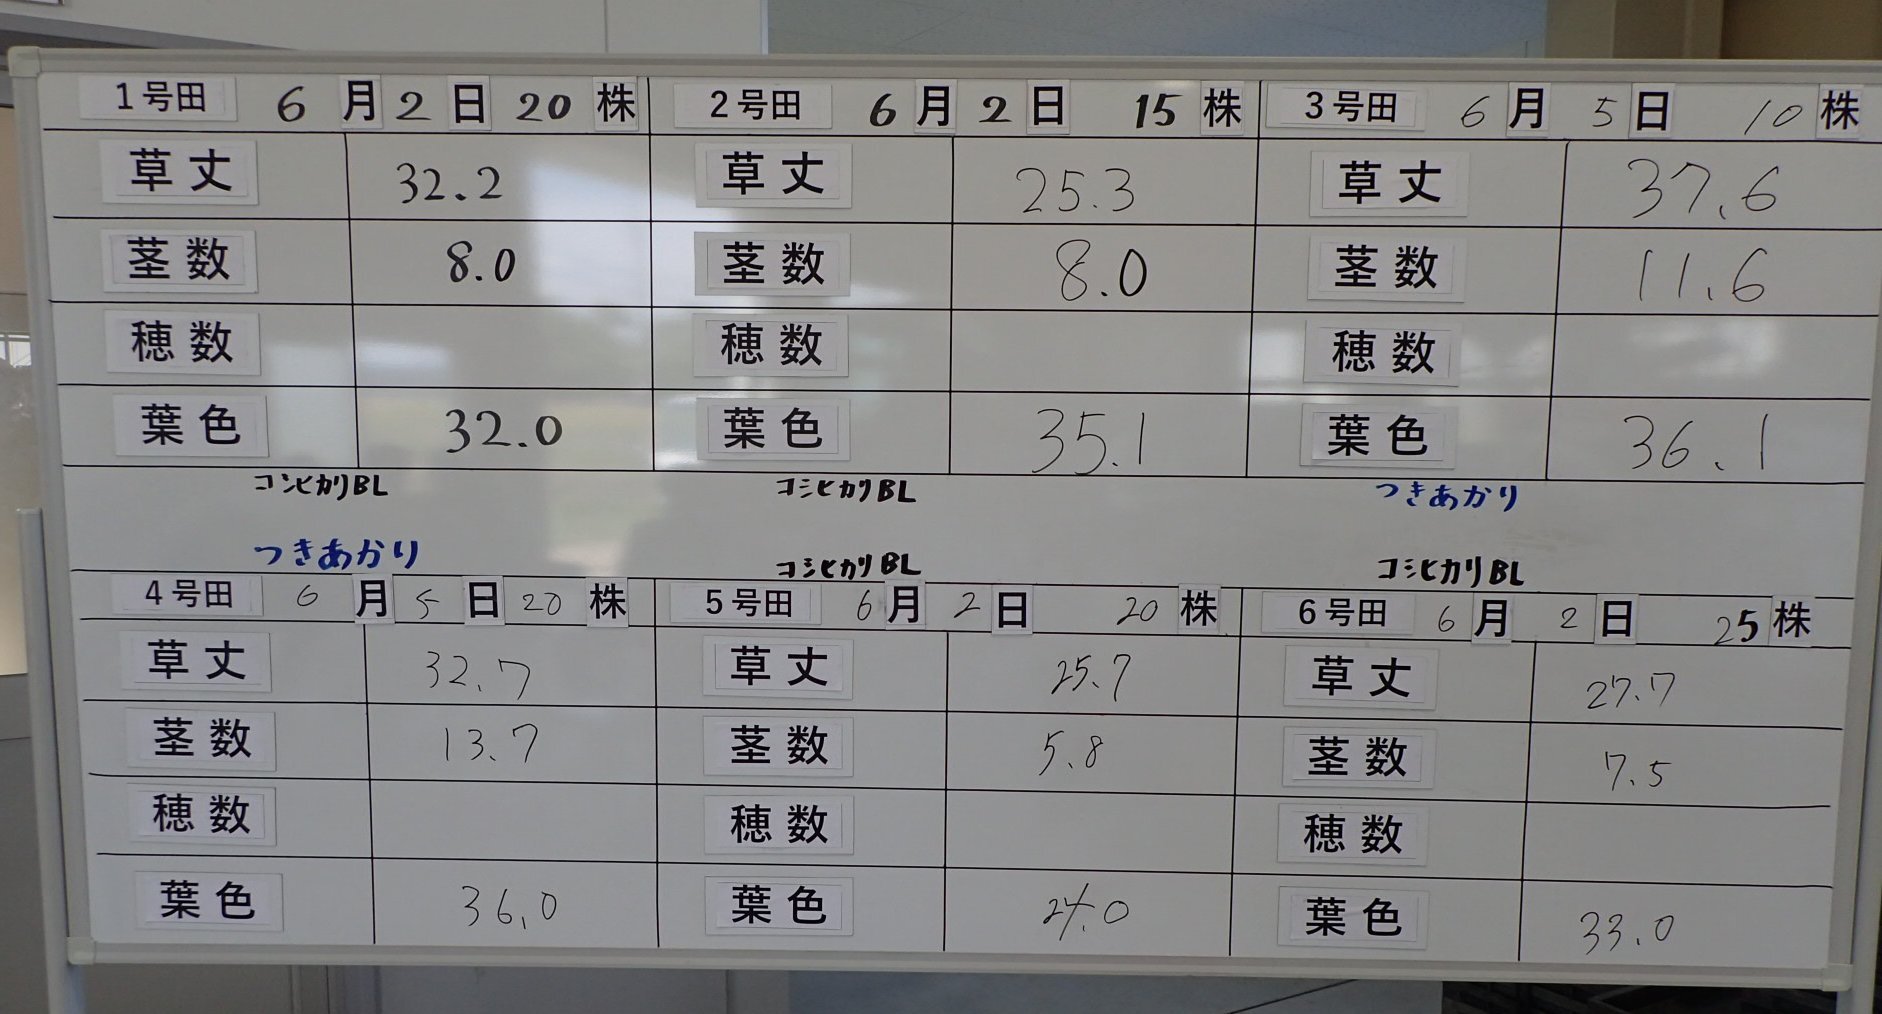 1号田 6月2日 20株
草丈 32.2
茎数 8.0
穂数
葉色 32.0
コシヒカリBL
2号田 6月2日 15株
草丈 25.3
茎数 8.0
穂数
葉色 35.1
コシヒカリBL
3号田 6月5日 10株
草丈 37.6
茎数 11.6
穂数
葉色 36.1
つきあかり
つきあかり
4号田 6月5日 20株
草丈 32.7
茎数 13.7
穂数
葉色 36.0
コシヒカリBL
5号田 6月2日 20株
草丈 25.7
茎数 5.8
穂数
葉色 24.0
コシヒカリBL
6号田 6月2日 25株
草丈 27.7
茎数 7.5
穂数
葉色 33.0